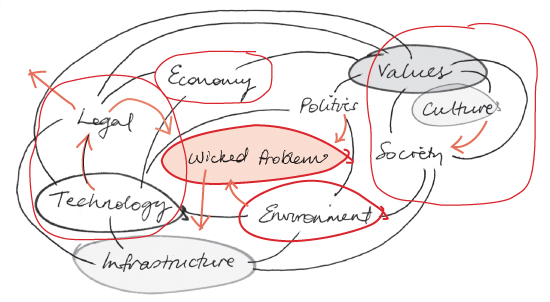 Economy
Values
Culture
Legal
Politics
Wicked Problem
Society
Technology
Environment
Infrastructure